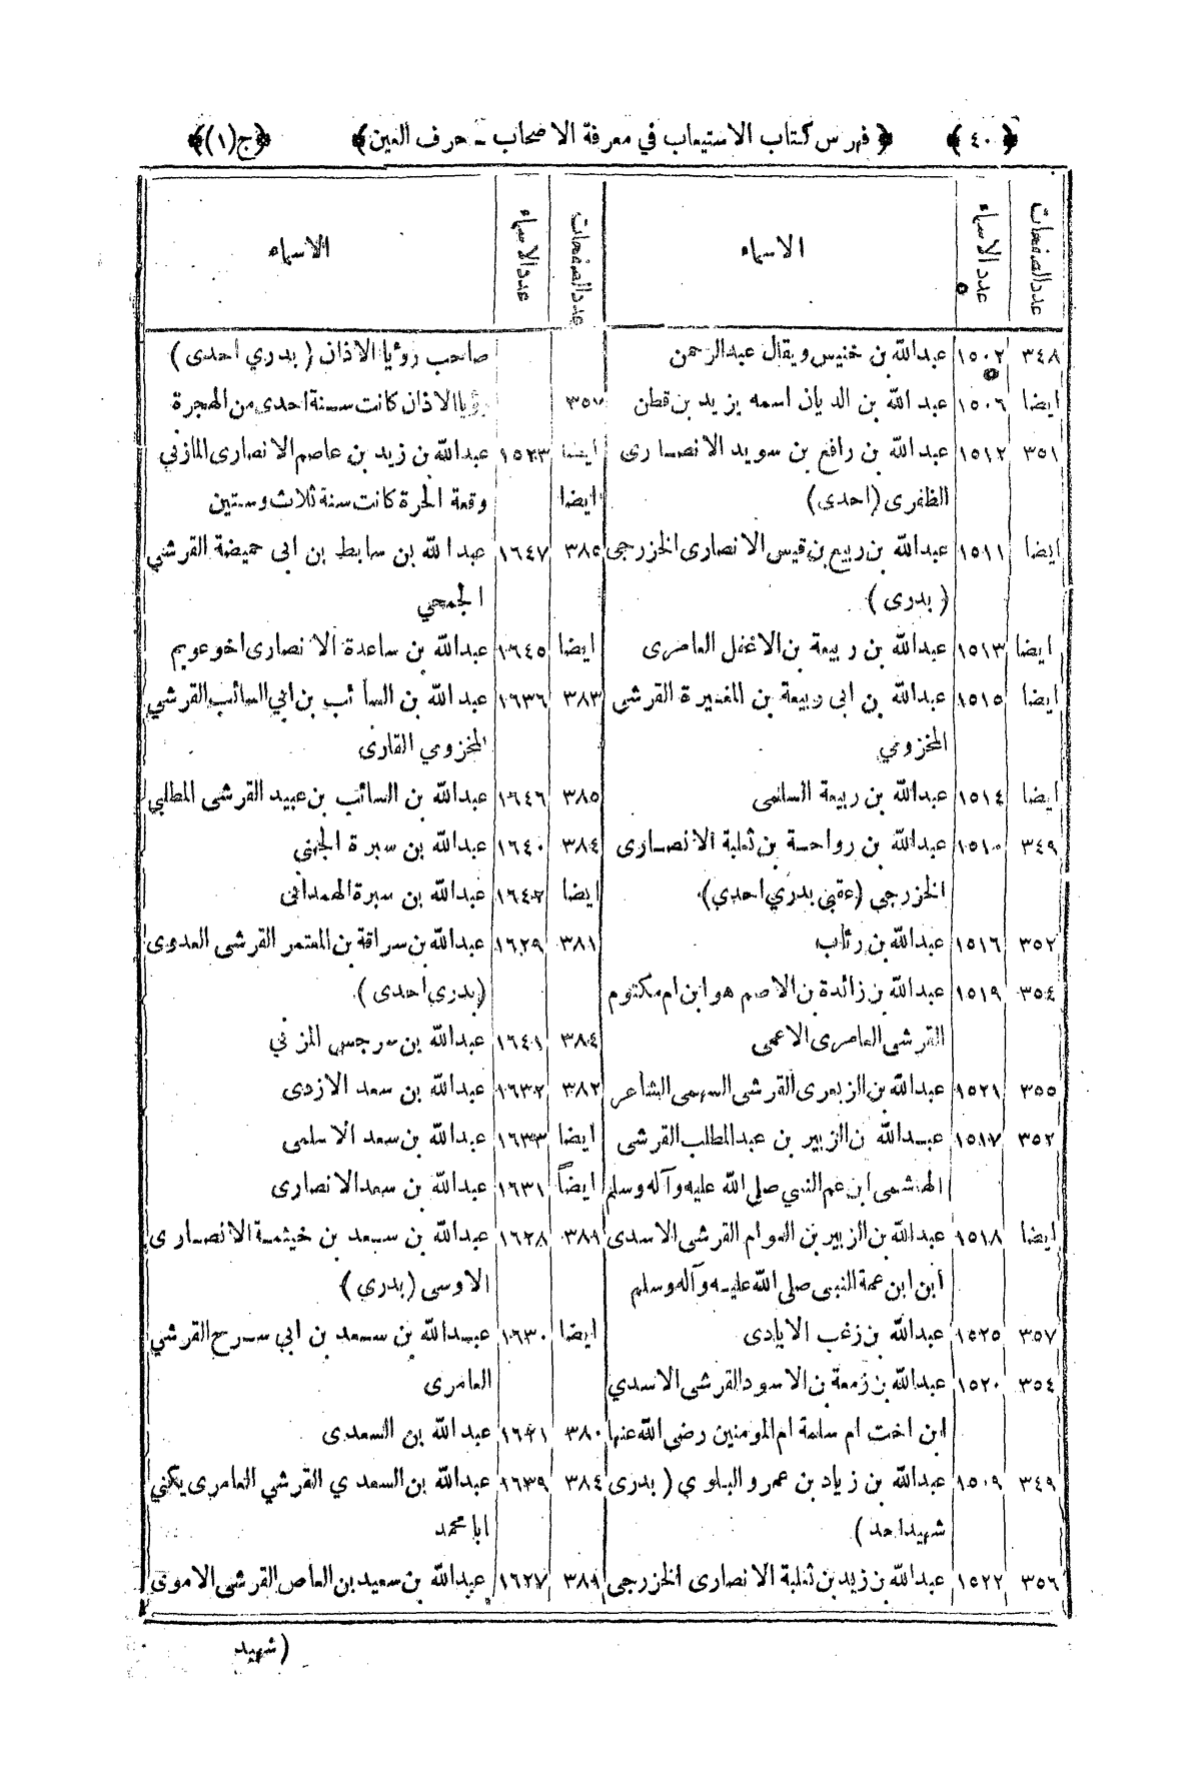 ﴿٤٠﴾ ﴿فهرس كتاب الاستيعاب في معرفة الاصحاب ـ حرف العين﴾ ﴿ج(١)﴾
عددالصفحات عددالاسماء الاسماء
٣٤٨ ١٥٠٢ عبدالله بن خنيس ويقال عبدالرحمن
ايضا ١٥٠٦ عبد الله بن الديان اسمه يزيد بن قطن
٣٥١ ١٥١٢ عبدالله بن رافع بن سويد الانصارى
الظفرى (احدى)
ايضا ١٥١١ عبدالله بن ربيع بن قيس الانصارى الخزرجى
(بدرى)
ايضا ١٥١٣ عبدالله بن ربيعة بن الاغفل العامرى
ايضا ١٥١٥ عبدالله بن ابى ربيعة بن المغيرة القرشى
المخزومي
ايضا ١٥١٤ عبدالله بن ربيعة السلمى
٣٤٩ ١٥١٠ عبدالله بن رواحة بن ثعلبة الانصارى
الخزرجى (عقبى بدري احدي)
٣٥٢ ١٥١٦ عبدالله بن رئاب
٣٥٤ ١٥١٩ عبدالله بن زائدة بن الاصم هو ابن ام مكتوم
القرشى العامرى الاعمى
٣٥٥ ١٥٢١ عبدالله بن الزبعرى القرشى السهمى الشاعر
٣٥٢ ١٥١٧ عبدالله بن الزبير بن عبدالمطلب القرشى
الهاشمى ابن عم النبي صلى الله عليه وآله وسلم
ايضا ١٥١٨ عبدالله بن الزبير بن العوام القرشى الاسدى
أبن ابن عمة النبى صلى الله عليه وآله وسلم
٣٥٧ ١٥٢٥ عبدالله بن زغب الايادى
٣٥٤ ١٥٢٠ عبدالله بن زمعة بن الاسود القرشى الاسدي
ابن اخت ام سلمة ام المومنين رضى الله عنها
٣٤٩ ١٥٠٩ عبدالله بن زياد بن عمرو البلوي (بدرى
شهيد احد)
٣٥٦ ١٥٢٢ عبدالله بن زيد بن ثعلبة الانصارى الخزرجى
عددالصفحات عددالاسماء الاسماء
صاحب رؤيا الاذان (بدري احدى)
٣٥٧ رؤيا الاذان كانت سنة احدى من الهجرة
ايضا ١٥٢٣ عبدالله بن زيد بن عاصم الانصارى المازني
ايضا وقعة الحرة كانت سنة ثلاث وستين
٣٨٥ ١٦٤٧ عبدالله بن سابط بن ابى حميضة القرشي
الجمحي
ايضا ١٦٤٥ عبدالله بن ساعدة الانصارى اخو عويم
٣٨٣ ١٦٣٦ عبدالله بن السائب بن ابي السائب القرشي
المخزومي القارى
٣٨٥ ١٦٤٦ عبدالله بن السائب بن عبيد القرشى المطلبي
٣٨٤ ١٦٤٠ عبدالله بن سبرة الجهني
ايضا عبدالله بن سبرة الهمدانى
٣٨١ ١٦٢٩ عبدالله بن سراقة بن المعتمر القرشى العدوى
(بدرى احدى)
٣٨٤ ١٦٤١ عبدالله بن سرجس المزني
٣٨٢ ١٦٣٢ عبدالله بن سعد الازدى
ايضا ١٦٣٣ عبدالله بن سعد الاسلمى
ايضاً ١٦٣١ عبدالله بن سعد الانصارى
٣٨١ ١٦٢٨ عبدالله بن سعد بن خيثمة الانصارى
الاوسى (بدري)
ايضا ١٦٣٠ عبدالله بن سعد بن ابي سرح القرشي
العامرى
٣٨٠ عبدالله بن السعدى
٣٨٤ ١٦٣٩ عبدالله بن السعدي القرشي العامرى يكني
ابا محمد
٣٨١ ١٦٢٧ عبدالله بن سعيد بن العاص القرشى الاموى
(شهيد